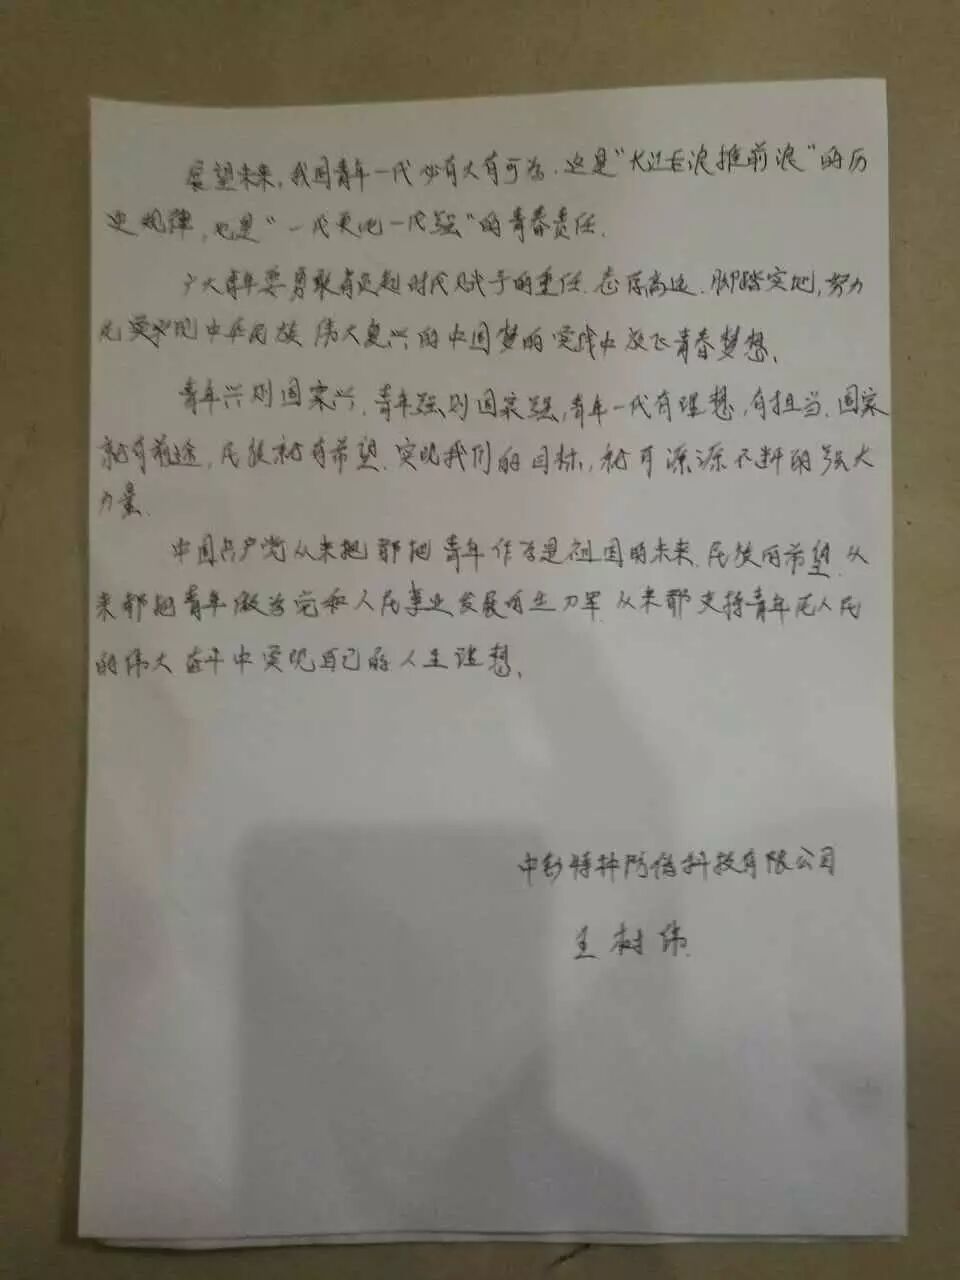 展望未来,我国青年一代必有大有可为.这是"长江后浪推前浪"的历
史规律,也是"一代更比一代强"的青春责任.
广大青年要勇敢肩负起时代赋予的重任.志存高远.脚踏实地,努力
在实现中华民族伟大复兴的中国梦的实践中放飞青春梦想.
青年兴则国家兴,青年强则国家强,青年一代有理想,有担当.国家
就有前途,民族就有希望.实现我们的目标,就可源源不断的强大
力量.
中国共产党从来把都把青年作为是祖国的未来.民族的希望.从
来都把青年做为党和人民事业发展的生力军.从来都支持青年在人民
的伟大奋斗中实现自己的人生理想.
中钞特种防伪科技有限公司
王树伟